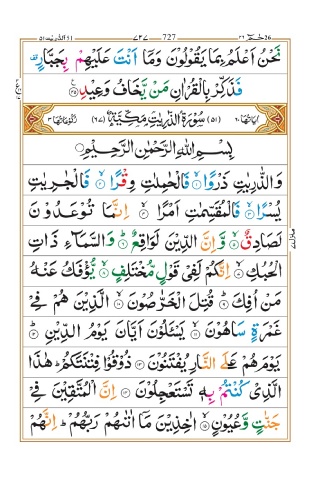 حٰمٓ ٢٦ ٧٢٧ 727 الذّٰرِیٰت ٥١
نَحْنُ اَعْلَمُ بِمَا یَقُوْلُوْنَ وَمَاۤ اَنْتَ عَلَیْهِمْ بِجَبَّارٍ
فَذَكِّرْ بِالْقُرْاٰنِ مَنْ یَّخَافُ وَعِیْدِ ﴿٤٥﴾
اٰیَاتُهَا ٦٠ ﴿٥١﴾ سُوْرَةُ الذّٰرِیٰتِ مَكِّیَّةٌ ﴿٦٧﴾ رُكُوْعَاتُهَا ٣
بِسْمِ اللّٰهِ الرَّحْمٰنِ الرَّحِیْمِ
وَالذّٰرِیٰتِ ذَرْوًا ﴿١﴾ فَالْحٰمِلٰتِ وِقْرًا ﴿٢﴾ فَالْجٰرِیٰتِ
یُسْرًا ﴿٣﴾ فَالْمُقَسِّمٰتِ اَمْرًا ﴿٤﴾ اِنَّمَا تُوْعَدُوْنَ
لَصَادِقٌ ﴿٥﴾ وَّاِنَّ الدِّیْنَ لَوَاقِعٌ ﴿٦﴾ وَالسَّمَآءِ ذَاتِ
الْحُبُكِ ﴿٧﴾ اِنَّكُمْ لَفِیْ قَوْلٍ مُّخْتَلِفٍ ﴿٨﴾ یُّؤْفَكُ عَنْهُ
مَنْ اُفِكَ ﴿٩﴾ قُتِلَ الْخَرّٰصُوْنَ ﴿١٠﴾ الَّذِیْنَ هُمْ فِیْ
غَمْرَةٍ سَاهُوْنَ ﴿١١﴾ یَسْـَٔلُوْنَ اَیَّانَ یَوْمُ الدِّیْنِ ﴿١٢﴾
یَوْمَ هُمْ عَلَی النَّارِ یُفْتَنُوْنَ ﴿١٣﴾ ذُوْقُوْا فِتْنَتَكُمْ ؕ هٰذَا
الَّذِیْ كُنْتُمْ بِهٖ تَسْتَعْجِلُوْنَ ﴿١٤﴾ اِنَّ الْمُتَّقِیْنَ فِیْ
جَنّٰتٍ وَّعُیُوْنٍ ﴿١٥﴾ اٰخِذِیْنَ مَاۤ اٰتٰىهُمْ رَبُّهُمْ ؕ اِنَّهُمْ